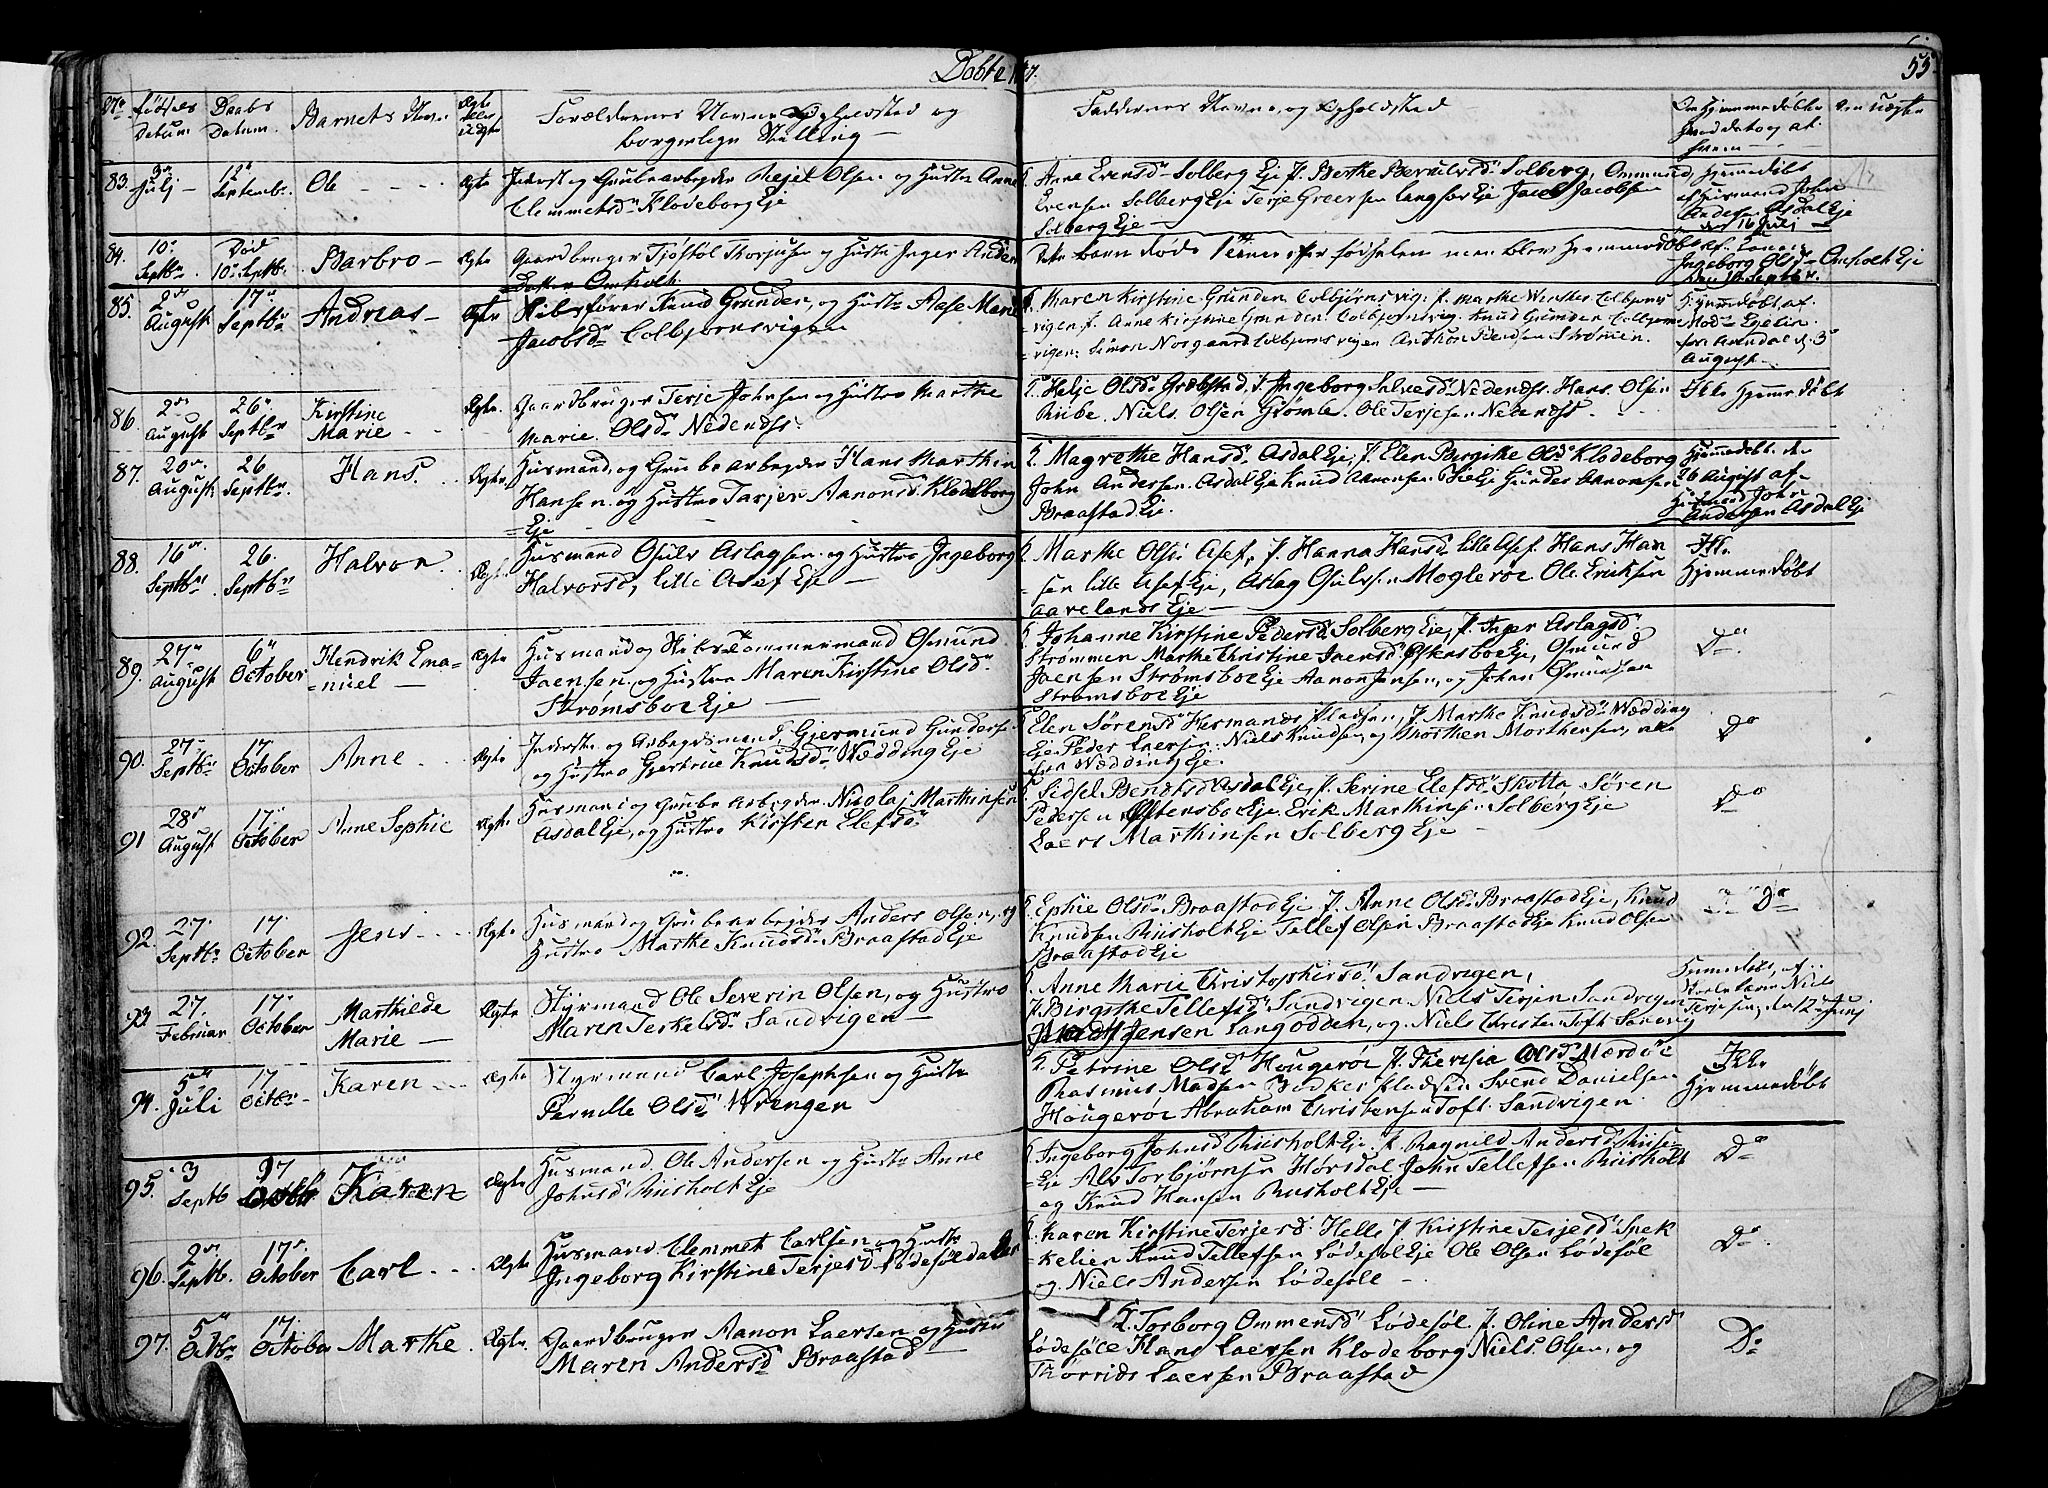 Døbte
55
No Fødsels Datum Daabs Datum. Barnets Navn Ægte eller uægte Forældrenes Navne Opholdsted og borgerlige Stilling Faddernes Navne, og Opholdsted Om hjemmedøbt hvad dato og af hvem
83. Juli 12 Septembr. Ole Ægte og Grubearbeyder Ole Olsen og Hustr Anne
Clemmetsd Klodeborg Eje
Anne Evensd Solberg Eje J. Berthe Solberg, Ommund
Evensen Solberg Eje Terje Greersen Langsæ Eje Jacob Jacobsen
Solberg Eje
hjemmedøbt
af Husmand John
Andersen Asdal Eje
16 Juli
84. 10 Septbr. Død 10 Septbr. Barbro Ægte Gaardbruger Tjøstøl Thorjusen og Hustr Inger Anders
Datter Omholt
Dette barn døde men blev hjemmedøbt af
Ingeborg Olsd Omholt Eje
den 10 Septbr.
85. 2 August 17 Septbr Andreas Ægte Skibsfører Knud Grunden, og Hustr Aase Marie
Jacobsd Colbjørnsvigen
Maren Kirstine Grunden Colbjørnsvig. J. Marthe Winther Colbjørns
vigen J. Anne Kirstine Grunden Colbjørnsvig. Knud Grunden Colbjørns
vigen Simon Norgaard Colbjørnsvigen Anthon Bendsen Strømen.
Hjemmedøbt af
Mod Egelin
fra Arendal d. 3
August
86. 2 August 26 Septbr Kirstine
Marie Ægte. Gaardbruger Terje Johnsen og Hustro Marthe
Marie Olsd Nedenæs
Helje Olsd Græbstad, J. Ingeborg Salvesd Nedenæs. Hans Olsen
Niels Olsen Gromle. Ole Terjesen Nedenæs.
Ikke hjemmedøbt
87. 20 August 26 Septbr. Hans. Ægte. Husmand, og Grubearbeyder Hans Marthin
Hansen og Hustro Tarjer Aanonsd. Klodeborg
Eje
Magrethe Hansd. Asdal Eje, J. Elen Birgithe Olsd Klodeborg
John Andersen. Asdal Eje Knud Aanonsen Eje Gunder Aanonsen
Braastad Eje.
Hjemmedøbt den
26 August af
Husmand John
Andersen Asdal Eje
88. 16 Septbr 26. Septbr Halvor Ægte Husmand Osulv Aslagsen og Hustro Ingeborg
Halvorsd, lille Asef Eje
Marthe Olsd Asef, J. Hanna Hansd lille Asef. Hans Han
sen lille Asef Eje, Aslag Osulvsen Moglerøe Ole Eriksen
Aavelands Eje
Ikke
Hjemmedøbt
89. 27 August 6 October Hendrik Ema=
=nuel Ægte Husmand og Skibstømmermand Osmund
Jaensen og Hustro Maren Kirstine Olsd
Strømsboe Eje
Johanne Kirstine Pedersd Solberg Eje, J. Inger Aslagsd
Strømmen Marthe Christine Jaensd Østensboe Eje, Osmund
Jaensen Strømsboe Eje Aanon Jensen, og Johan Osmundsen
Strømsboe Eje
Do.
90. 27 Septbr 17 October Anne Ægte Inderste og Arbeydsmand, Gjermund Gunderse
og Hustro Gjertrue Knudsd Wædding Eje
Elen Sørensd Hermands Pladsen, J. Marthe Knudsd Wædding
Eje Peder Laersen Niels Knudsen, og Morthen Morthensen, alle
fra Wædding Eje.
Do
91 28 August 17. October Anne Sophie Ægte Husmand og Grubearbeyder Nicolaj Marthinsen
Asdal Eje, og Hustro Kirsten Elefsd
Sidsel Bendtsd Asdal Eje, J. Serine Elefsd Skotta Søren
Pedersen Østensboe Eje Erik Marthinsen Solberg Eje
Laers Marthinsen Solberg Eje
Do
92. 27. Septbr 17. October Jens Ægte Husmand og Grubearbeyder Anders Olsen, og
Hustro Marthe Knudsd Braastad Eje
Ephie Olsd Braastad Eje J. Anne Olsd Braastad Eje, Knud
Knudsen Riisholt Eje Tellef Olsen Braastad Eje Knud Olsen
Braastad Eje
Do
93. 27. Februar 17 October Marthilde
Marie Ægte Styrmand Ole Severin Olsen, og Hustro
Maren Terkelsd Sandvigen
Anne Marie Christophersd Sandvigen,
J. Birgithe Tellefsd Sandvigen Niels Terjesen Sandvigen
Jensen Langodden, og Niels Christen Toft Sandvig
Hjemmedøbt, af
Skolelærer Niels
Terjesen, den 12 Junj
94. 5 Juli 17 Octbr Karen Ægte Styrmand Carl Josephsen og Hustr
Pernille Olsd Wrengen
Petrine Olsd Hougerøe J. Theresia Olsd Merdøe
Rasmus Madsen Svend Danielsen
Hougerøe Abraham Christensen Toft Sandvigen.
Ikke
Hjemmedøbt
95. 3 Septb 17 Octbr Karen Ægte Husmand. Ole Andersen og Hustr Anne
Johnsd Riisholt Eje
Ingeborg Johnsd Riisholt Eje J. Ragnild Andersd Riise=
Eje Alv Torbjørnsen Hørsdal John Tellefsen Riisholt
og Knud Hansen Riisholt Eje
Do
96. 2 Septb. 17 October Carl Ægte Husmand Clemmet Carlsen og Hustr
Ingeborg Kirstine Terjesd Lødesøldalen
Karen Kirstine Terjesd. Helle J. Kirstine Terjesd Snek
=kelien Knud Tellefsen Lødesøl Eje Ole Olsen Lødesøl
og Niels Andersen Lødesøle
Do
97. 5 Octbr 17. October Marthe. Ægte Gaardbruger Aanon Laersen og Hustr
Maren Andersd Braastad
Torborg Ommensd Lødesøl J. Oline Andersd
Lødesøle Hans Laersen Klodeborg Niels Olsen, og
Thorrids Laersen Braastad
Do